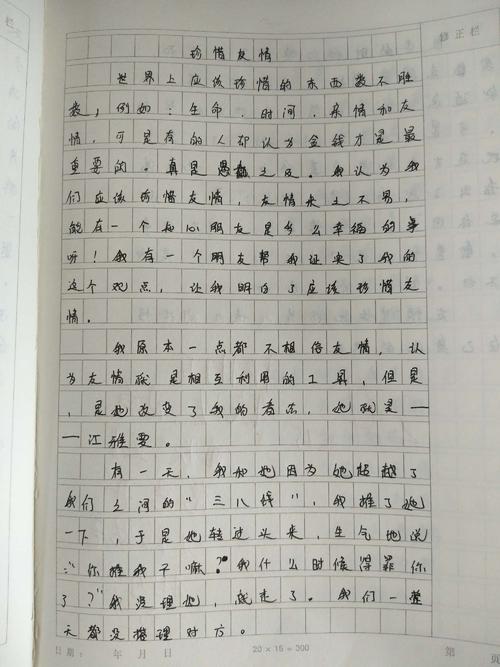 珍惜友情
世界上应该珍惜的东西数不胜
数，例如：生命，时间，亲情和友
情，可是有的人却认为金钱才是最
重要的。真是愚蠢之及。我认为我
们应该珍惜友情，友情来之不易，
能在一个知心朋友是多么幸福的事
呀！我有一个朋友帮我证实了我的
这个观点，让我明白了应该珍惜友
情。
我原本一点都不相信友情，认
为友情就是相互利用的工具，但是
，是她改变了我的看法，她就是—
—江雅雯。
有一天，我和她因为她超越了
我们之间的“三八线”，我推了她
一下，于是她转过头来，生气地说
：“你推我干嘛？我什么时候得罪你
了？”我没理她，就走了。我们一整
天都没搭理对方。
修正栏
日期： 年 月 日
20×15=300
第 页